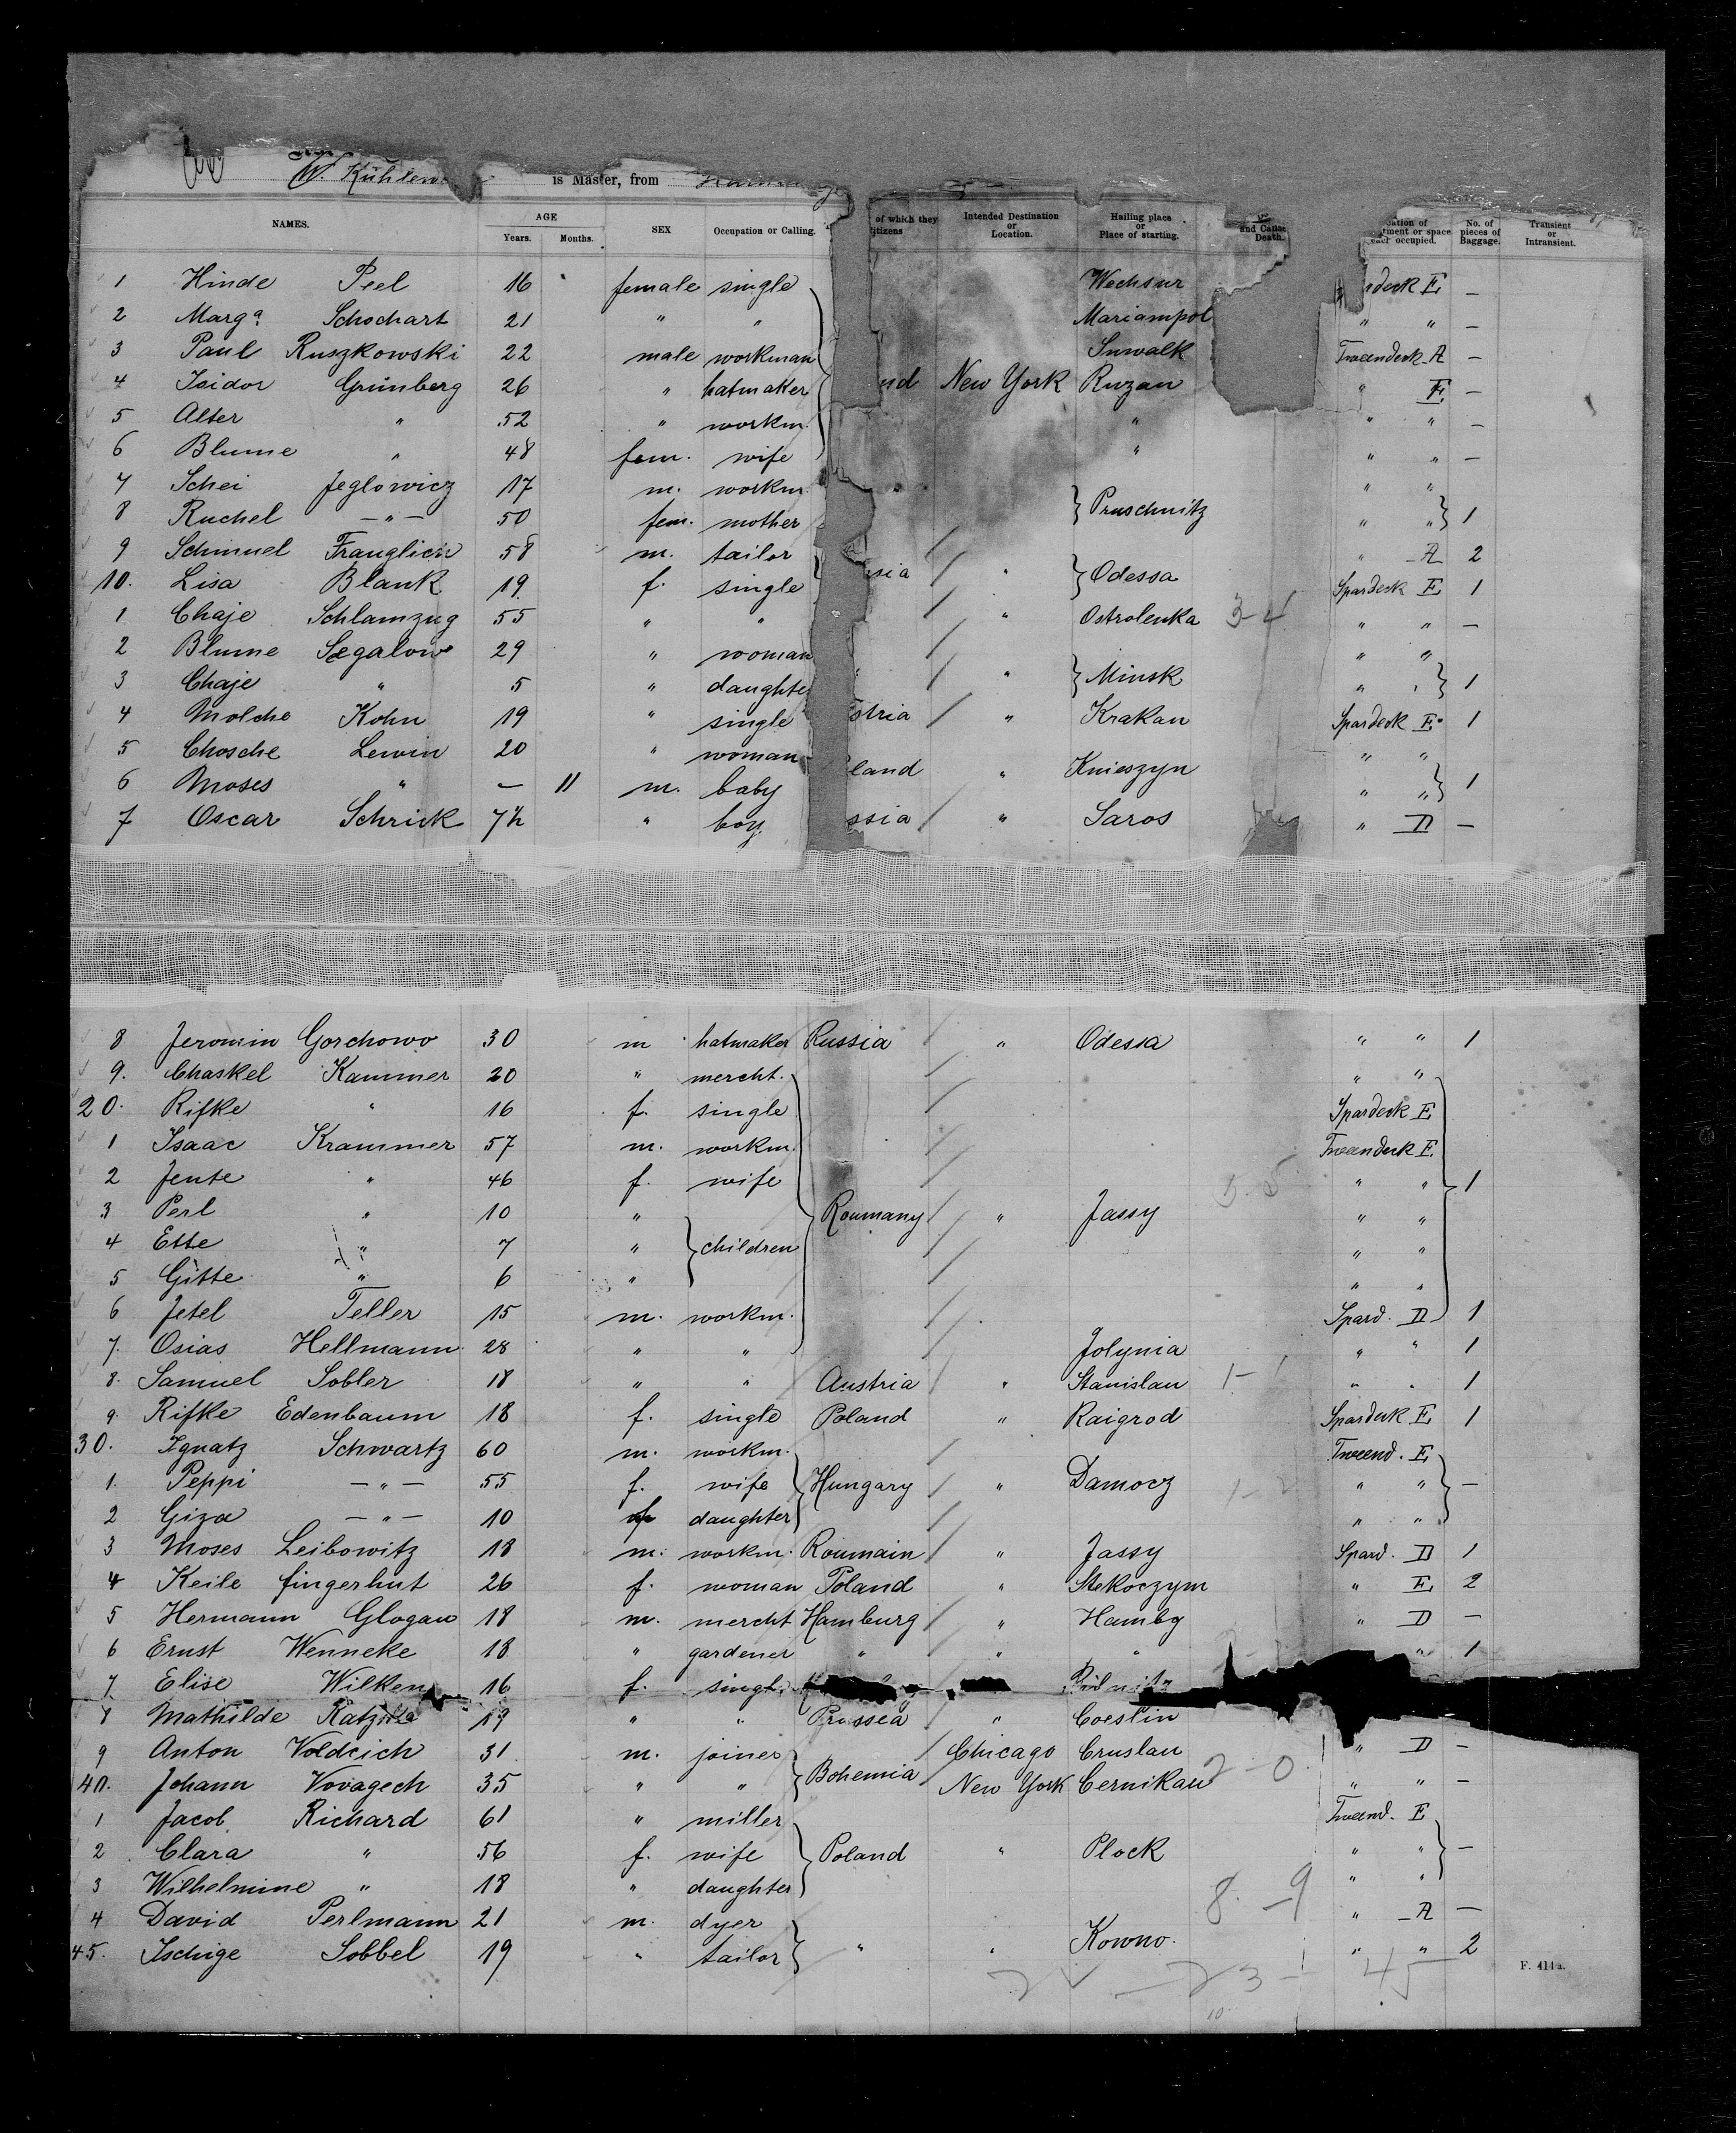 W. Kühlew is Master, from
NAMES. AGE Years. Months. SEX Occupation or Calling. of which they citizens Intended Destination or Location. Hailing place or Place of starting. and Cause Death. No. of pieces of Baggage. Transient or Intransient.
1 Hinde Peel 16 female single Wechsur E –
2 Marg.a Schochart 21 " " Mariampol " " –
3 Paul Ruszkowski 22 male workman Suwalk Tweendeck A –
4 Isidor Grünberg 26 " hatmaker nd New York Ruzan " E –
5 Alter " 52 " workm. " " " –
6 Blume " 48 fem. wife " " " –
7 Schei Jeglowicz 17 m. workm. " " "
8 Ruchel –"– 50 fem. mother Pruschnitz " " 1
9 Schmuel Franglich 58 m. tailor " A 2
10. Lisa Blank 19 f. single sia " Odessa Spardeck E 1
1 Chaje Schlamzug 55 " " " Ostrolenka 3-4 " " –
2 Blume Segalow 29 " woman " "
3 Chaje " 5 " daughte " Minsk " " 1
4 Molche Kohn 19 " single stria " Krakau Spardeck E 1
5 Chosche Lewin 20 " woman " "
6 Moses " – 11 m. baby land " Knieszyn " " 1
7 Oscar Schrick 7½ " boy ssia " Saros " D –
8 Jeromin Gorchowo 30 m hatmaker Russia " Odessa " " 1
9. Chaskel Kammer 20 " mercht. " "
20. Rifke " 16 f. single Spardeck E
1 Isaac Krammer 57 m. workm. Tweendeck E.
2 Jente " 46 f. wife " " 1
3 Perl " 10 " Roumany " Jassy " "
4 Ette " 7 " children " "
5 Gitte " 6 " " "
6 Jetel Teller 15 m. workm. Spard. D 1
7. Osias Hellmann 28 " " Jolynia " " 1
8. Samuel Sobler 18 " " Austria " Stanislau 1- " " 1
9. Rifke Edenbaum 18 f. single Poland " Raigrod Spardeck E 1
30. Ignatz Schwartz 60 m. workm. Tweend. E
1. Peppi –"– 55 f. wife Hungary " Damocz " " –
2 Giza –"– 10 f daughter " "
3 Moses Leibowitz 18 m. workm. Roumain " Jassy Spard. D 1
4 Keile fingerhut 26 f. woman Poland " Stekoczym " E 2
5 Hermann Glogau 18 m. mercht Hamburg " Hambg " D –
6 Ernst Wenneke 18 " gardener " " " " 1
7 Elise Wilken 16 f. singl.
8 Mathilde 19 " " Prussea " Coeslin
9 Anton Voldcich 31 m. joiner Chicago Cruslau " D –
40. Johann Vovagech 35 " " Bohemia New York Cernikau 2-0 " " –
1 Jacob Richard 61 " miller Tweend. E
2 Clara " 56 f. wife Poland " Plock " " –
3 Wilhelmine " 18 " daughter " "
4 David Perlmann 21 m. dyer 8.-9 " A –
45. Ischige Sobbel 19 " tailor " " Kowno. " " 2
23 45
10
F. 414a.